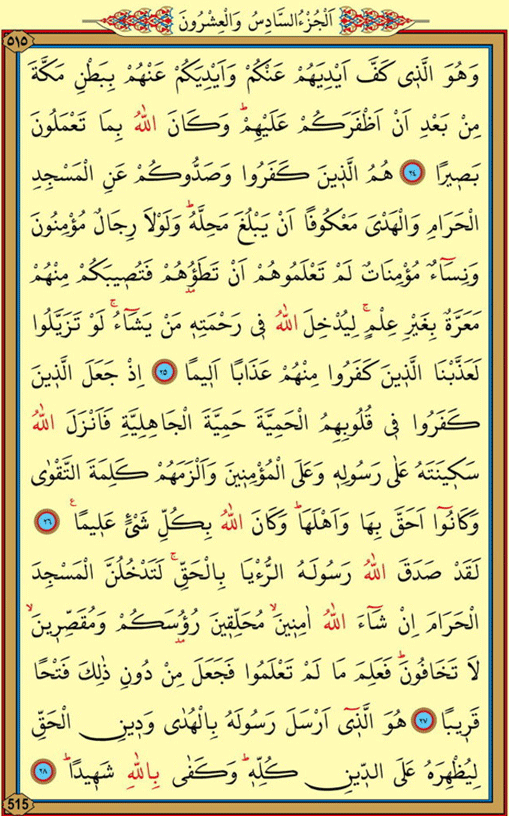 اَلْجُزْءُ السَّادِسُ وَالْعِشْرُونَ
٥١٥
وَهُوَ الَّذٖى كَفَّ اَيْدِيَهُمْ عَنْكُمْ وَاَيْدِيَكُمْ عَنْهُمْ بِبَطْنِ مَكَّةَ
مِنْ بَعْدِ اَنْ اَظْفَرَكُمْ عَلَيْهِمْؕ وَكَانَ اللّٰهُ بِمَا تَعْمَلُونَ
بَصٖيرًا ﴿٢٤﴾ هُمُ الَّذٖينَ كَفَرُوا وَصَدُّوكُمْ عَنِ الْمَسْجِدِ
الْحَرَامِ وَالْهَدْىَ مَعْكُوفًا اَنْ يَبْلُغَ مَحِلَّهُؕ وَلَوْلَا رِجَالٌ مُؤْمِنُونَ
وَنِسَٓاءٌ مُؤْمِنَاتٌ لَمْ تَعْلَمُوهُمْ اَنْ تَطَؤُ۫هُمْ فَتُصٖيبَكُمْ مِنْهُمْ
مَعَرَّةٌ بِغَيْرِ عِلْمٍۚ لِيُدْخِلَ اللّٰهُ فٖى رَحْمَتِهٖ مَنْ يَشَٓاءُۚ لَوْ تَزَيَّلُوا
لَعَذَّبْنَا الَّذٖينَ كَفَرُوا مِنْهُمْ عَذَابًا اَلٖيمًا ﴿٢٥﴾ اِذْ جَعَلَ الَّذٖينَ
كَفَرُوا فٖى قُلُوبِهِمُ الْحَمِيَّةَ حَمِيَّةَ الْجَاهِلِيَّةِ فَاَنْزَلَ اللّٰهُ
سَكٖينَتَهُ عَلٰى رَسُولِهٖ وَعَلَى الْمُؤْمِنٖينَ وَاَلْزَمَهُمْ كَلِمَةَ التَّقْوٰى
وَكَانُٓوا اَحَقَّ بِهَا وَاَهْلَهَاؕ وَكَانَ اللّٰهُ بِكُلِّ شَىْءٍ عَلٖيمًاࣖ ﴿٢٦﴾
لَقَدْ صَدَقَ اللّٰهُ رَسُولَهُ الرُّءْيَا بِالْحَقِّۚ لَتَدْخُلُنَّ الْمَسْجِدَ
الْحَرَامَ اِنْ شَٓاءَ اللّٰهُ اٰمِنٖينَۙ مُحَلِّقٖينَ رُؤُ۫سَكُمْ وَمُقَصِّرٖينَۙ
لَا تَخَافُونَؕ فَعَلِمَ مَا لَمْ تَعْلَمُوا فَجَعَلَ مِنْ دُونِ ذٰلِكَ فَتْحًا
قَرٖيبًا ﴿٢٧﴾ هُوَ الَّذٖٓى اَرْسَلَ رَسُولَهُ بِالْهُدٰى وَدٖينِ الْحَقِّ
لِيُظْهِرَهُ عَلَى الدّٖينِ كُلِّهٖؕ وَكَفٰى بِاللّٰهِ شَهٖيدًاؕ ﴿٢٨﴾
515